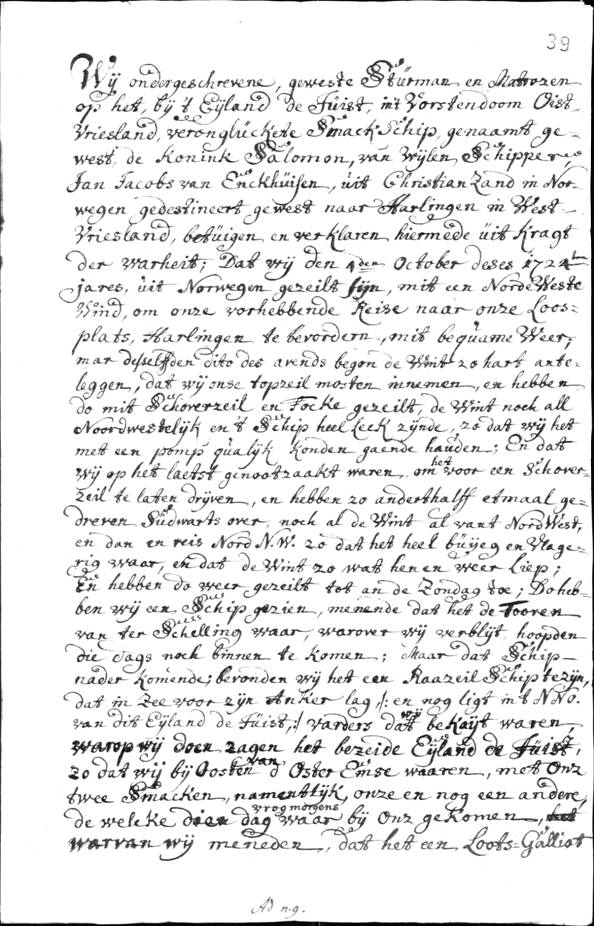 39
Wij ondergeschrevene, geweste Stürman en Matrozen
op het, bij 't Eijland de Jüist, in't Vorstendoom Oist-
Vriesland, veronglückete Smack Schip, genaamt ge-
west, de Konink Salomon, van Wijlen Schipper
Jan Jacobs van Enckhüisen, üit Christian Zand in Nor-
wegen gedestineert gewest naar Harlingen in West-
Vriesland, betüigen en verklaren hiermede üit Kragt
der warheit; Dat wij den 4den October deses 1724ten
jares, üit Norwegen gezeilt sijn, mit een Norde Weste
Wind, om onze vorhebbende Reise naar onze Loos-
plats, Harlingen te bevordern, mit beqüame Weer,
mar desselfden dito des avends begon de Wint zo hart ante-
leggen, dat wij onse topzeil mosten innemen, en hebben
do mit Schoverzeil en Focke gezeilt, de Wint noch all
Noordwestelijk en 't Schip heel leck zijnde, zo dat wij het
met een pomp qüalijk konden gaende haüden; En dat
wij op het laetst genootzaakt waren, om het voor een Schover-
Zeil te laten drijven, en hebben zo anderthalff etmaal ge-
dreven Südwarts over, noch al de Wint al vant NordWest,
en dan en reis Nord N.W. zo dat het heel büijeg en Vlage-
rig waar, en dat de Wint zo wat hen en weer liep;
En hebben do weer gezeilt tot an de Zondag toe; Do heb-
ben wij een Schip gezien, menende dat het de Tooren
van ter Schelling waar, warover wij verblijt, hoopden
die dags noch binnen te komen; Maar dat Schip
nader komende, bevonden wij het een Raazeil Schip te zijn,
dat in Zee voor zijn Anker lag /: en nog ligt int NNO.
van dit Eijland de Jüist, :/ varders dat wij bekaijt waren,
warop wij doen zagen het bezeide Eijland de Jüist,
zo dat wij bij Oosten van d'Oster Emse waaren, met Onz
twee Smacken, namentlijk onze en nog een andere,
de welcke dien dag vrog morgens waar bij Onz gekomen,
warvan wij meneden, dat het een Loots-Galliot
Ad n.9.